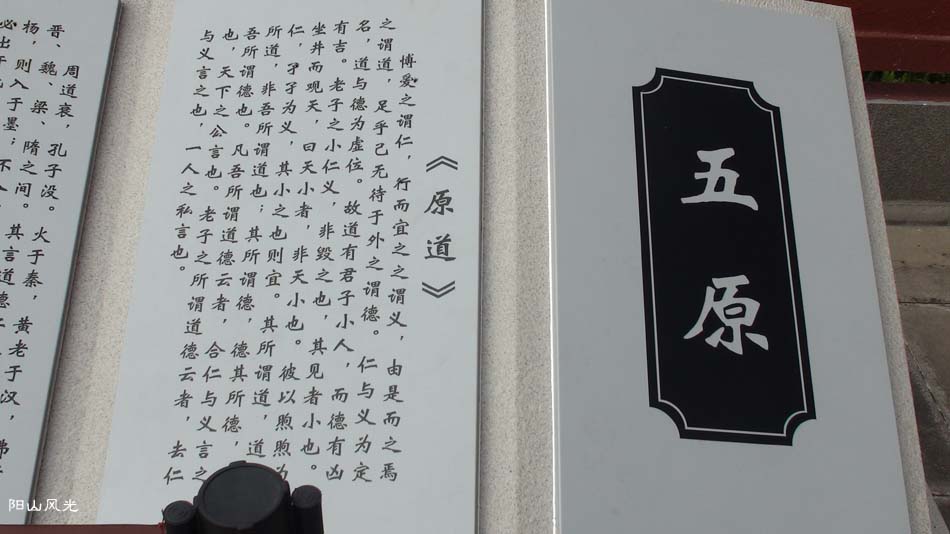 五原
《原道》
博爱之谓仁，行而宜之之谓义，由是而之焉
之谓道，足乎己无待于外之谓德。仁与义为定
名，道与德为虚位。故道有君子小人，而德有凶
有吉。老子之小仁义，非毁之也，其见者小也。
坐井而观天，曰天小者，非天小也。彼以煦煦为
仁，孑孑为义，其小之也则宜。其所谓道，道
所道，非吾所谓道也；其所谓德，德其所德，
吾所谓德也。凡吾所谓道德云者，合仁与义言之
也，天下之公言也。老子之所谓道德云者，去仁
与义言之也，一人之私言也。
周道衰，孔子没。火于秦，黄老于汉，佛
晋、魏、梁、隋之间。其言道德
杨，则入于墨；不入
必出于
阳山风光